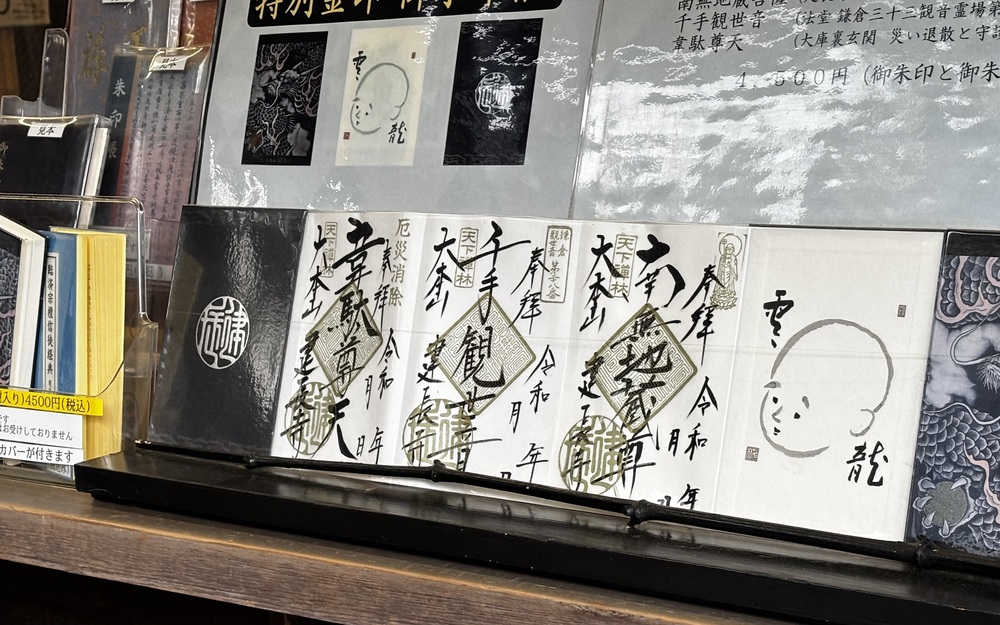 南無地蔵
千手観世音 (法堂 鎌倉三十三観音霊場第
韋駄尊天 (大庫裏玄関 災い退散と守護
4,500円 (御朱印と御朱
雲
龍
見本
見本
朱印帳
建長
厄災消除
奉拝
令和 年 月 日
韋駄尊天
天下禅林
大本山
建長寺
鎌倉
観世音 第二十八番
奉拝
令和 年 月 日
千手観世音
天下禅林
大本山
建長寺
奉拝
令和 年 月 日
南無地蔵尊
天下禅林
大本山
建長寺
雲
龍
臨済宗檀信徒経典
入り)4500円(税込)
です
はお受けしておりません
カバーが付きます